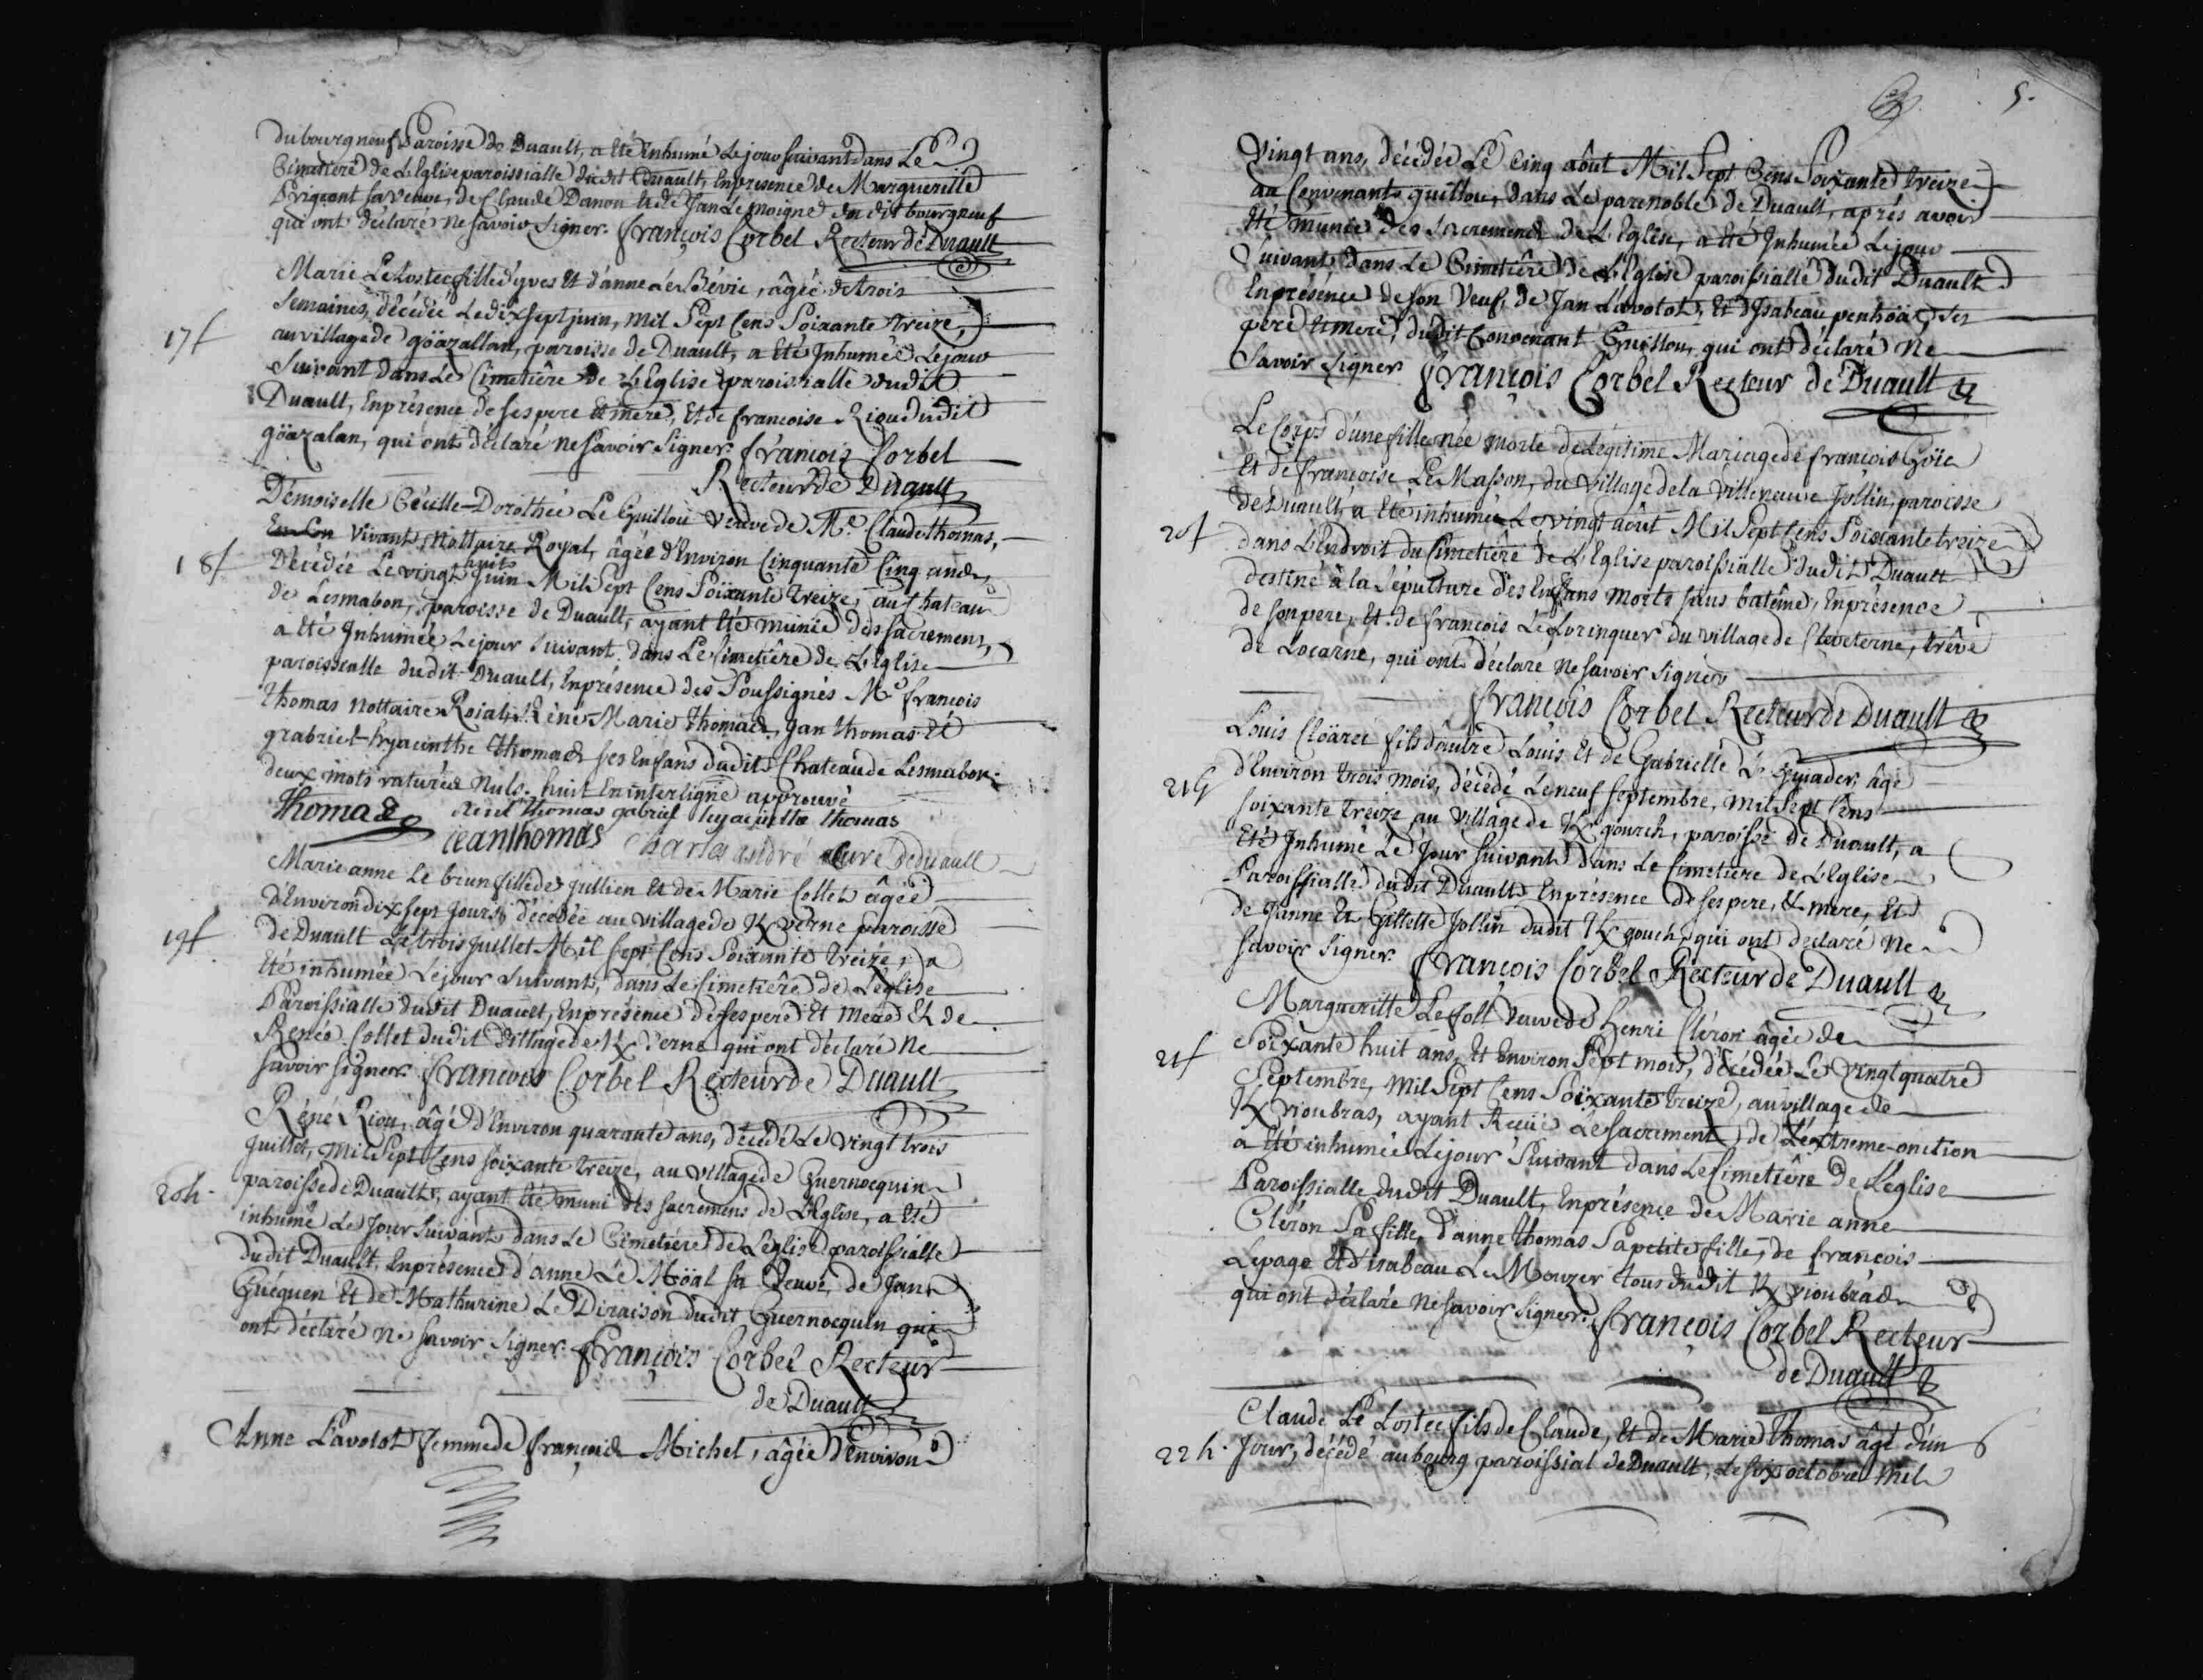 du bourgneuf Paroisse de Duault, a Eté inhumé Le jour suivant dans Le
Cimetiere de L'Eglise paroissialle dudit Duault, En presence de Margueritte
Prigeont sa veuve, de Claude Danon et de Jan Le moigne du dit bourgneuf
qui ont déclaré ne savoir signer. françois Corbel Recteur de Duault
Marie Le Lostec fille d'yves Et d'anne Le Bévic, âgée de trois
semaines, décédée Le dix sept juin, mil Sept Cens Soixante treize,
17 f
au village de göazallan, paroisse de Duault, a Eté Inhumée Le jour
suivant dans Le Cimetiêre de L'Eglise paroissialle dudit
Duault, En présence de ses pere et mere, Et de francoise Riou dudit
göazalan, qui ont déclaré ne savoir signer. françois Corbel
Recteur de Duault
Démoiselle Cécille-Dorothée Le Guillou veuve de Me. Claude thomas,
En son vivant nottaire Royal, âgée d'Environ Cinquante Cinq ans,
18 f
Décédée Le vingt huit juin Mil Sept Cens Soixante treize, au chateau
de Lesmabon, paroisse de Duault, ayant Eté munie des sacremens,
a Eté Inhumée Le jour suivant dans Le Cimetiêre de L'Eglise
paroissialle dudit Duault, En présence des Soussignés Me francois
thomas nottaire Roial, Réné Marie thomas, Jan thomas Et
grabriel-hyacinthe thomas ses Enfans dudit Chateau de Lesmabon:
deux mots raturés nuls. huit En interligne approuvé
Thomas René thomas gabriel hyacinthe thomas
jean thomas Charles andré Curé de duault
Marie anne Le brun fille de jullien Et de Marie Collet âgée
d'Environ dix sept jours décédée au village de K verne paroisse
19 f.
de Duault Le trois juillet Mil sept Cens Soixante treize, a
Eté inhumée Le jour suivant, dans Le Cimetiêre de L'église
Paroissialle dudit Duault, En présence de ses pere Et mere Et de
Renée Collet dudit village de K verne qui ont déclaré ne
savoir signer. françois Corbel Recteur de Duault
Réné Riou, âgé d'Environ quarante ans, décédé Le vingt trois
juillet, mil Sept Cens soixante treize, au village de Guernocquin
20 h.
paroisse de Duault, ayant Eté muni des sacremens de L'Eglise, a Eté
inhumé Le Jour suivant dans Le Cimetiére de L'église paroissialle
dudit Duault, En présence d'anne Le Moal sa veuve, de Jan
Guéguen Et de Mathurine Le Diraison dudit Guernocquin qui
ont déclaré ne savoir signer. françois Corbel Recteur
de Duault
Anne Lavotot femme de françois Michel, âgée d'Environ
5.
Vingt ans, décédée Le Cinq aôut Mil Sept Cens Soixante treize
au Convenant guillou, dans Le parc noble de Duault, aprés avoir
Eté munie des sacremens de L'Eglise, a Eté Inhumée Le jour
Suivant dans Le Cimetiêre de L'Eglise paroissialle dudit Duault
En présence de son Veuf, de Jan Lavotot, Et d'Isabeau penhöat, ses
pere et mere, dudit Convenant Guillou, qui ont déclaré ne
savoir signer françois Corbel Recteur de Duault
Le Corps d'une fille née morte de Légitime Mariage de françois Göic
Et de françoise Le Masson, du village de la villeneuve Jollin, paroisse
de Duault, a Eté inhumée Le vingt aôut Mil Sept Cens Soixante treize
20 f
dans L'Endroit du Cimetiêre de L'Eglise paroissialle dudit Duault
destiné à la Sépulture des Enfans morts sans batême, En présence
de son pere, Et de francois Le Lorinquer du village de Cleucterne, trêve
de Locarne, qui ont déclaré ne savoir signer
françois Corbel Recteur de Duault
Louis Clöarec fils d'autre Louis Et de Gabrielle Le Guiader, âgé
21 G
d'Environ trois mois, décédé Le neuf septembre, mil Sept Cens
soixante treize au village de K gourch, paroisse de Duault, a
Eté Inhumé Le Jour suivant dans Le Cimetiére de L'Eglise
Paroissialle dudit Duault En présence de ses pere, Et mere, Et
de Janne Et Gillette Jollin dudit K gouch, qui ont declaré ne
savoir signer. françois Corbel Recteur de Duault
Margueritte Le foll veuve de Henri Cléron âgée de
21 f
Soixante huit ans, Et Environ Sept mois, décédée Le vingt quatre
septembre, mil Sept Cens Soixante treize, au village de
K rioubras, ayant Recüe Le sacrement de L'éxtreme-onction
a Eté inhumée Le jour Suivant dans Le Cimetiêre de L'église
Paroissialle dudit Duault, En présence de Marie anne
Cléron Sa fille, d'anne thomas Sa petite fille, de francois
Lepage Et d'isabeau Le Mouzer tous dudit K rioubras
qui ont déclaré ne savoir signer. françois Corbel Recteur
de Duault
Claude Le Lostec fils de Claude, Et de Marie Thomas âgé d'un
22 h. Jour, décédé au bourg paroissial de Duault, Le six octobre mil